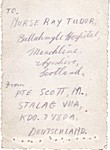 TO,
NURSE RAY TUDOR,
Ballochmyle Hospital,
Mauchline,
Ayrshire,
Scotland.
From
PTE SCOTT, M.,
STALAG VIIA,
KDO. 3450A,
DEUTSCHLAND.